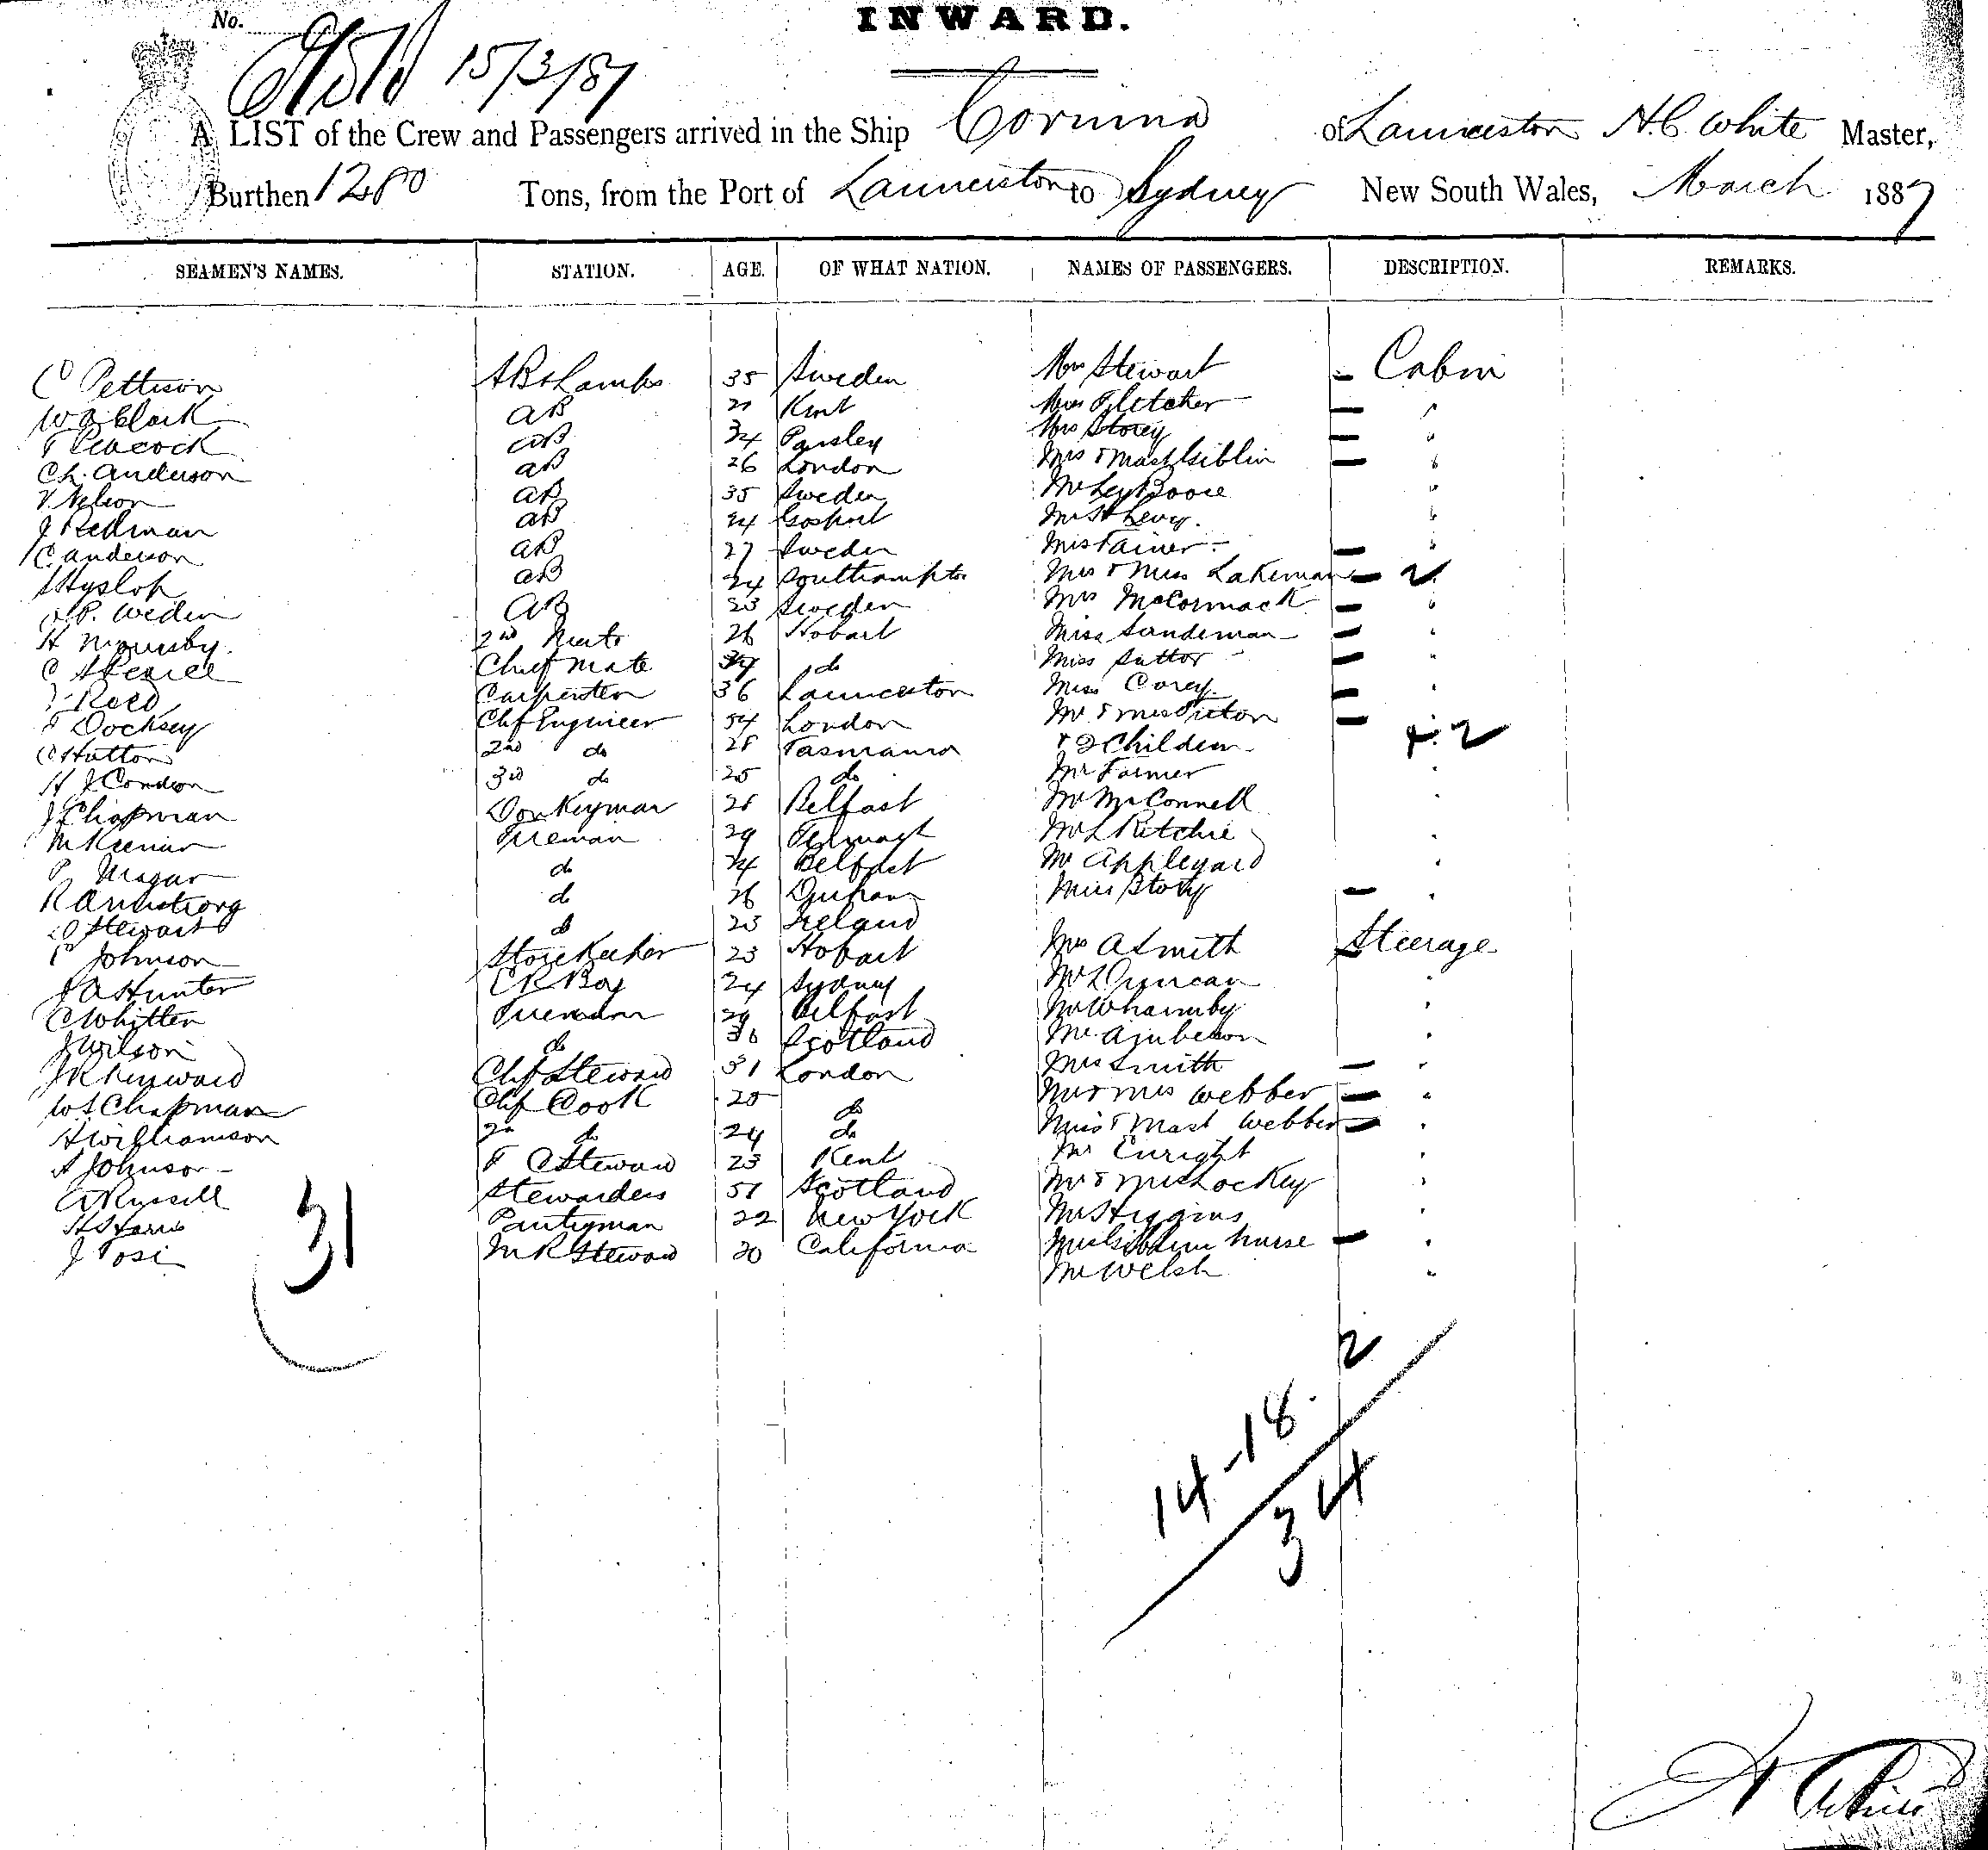 No.
INWARD.
15/3/87
A LIST of the Crew and Passengers arrived in the Ship Corinna of Launceston H.C. White Master,
Burthen 1280 Tons, from the Port of Launceston to Sydney New South Wales, March 1887
SEAMEN'S NAMES. STATION. AGE. OF WHAT NATION. NAMES OF PASSENGERS. DESCRIPTION. REMARKS.
C Pettison AB & Lamps 35 Sweden Mrs Stewart Cabin
W Black AB 21 Kent Mrs Fletcher "
Peacock AB 34 Paisley Mrs Storey "
Ch. Anderson AB 26 London Mrs & Mast Giblin "
V. Nelson AB 35 Sweden Boore "
J Redman AB 24 Gosport Levy. "
C. Anderson AB 27 Sweden "
Hyslop AB 24 Southampton Mrs & Miss Lakeman 2
P. Weden AB 23 Sweden Mrs McCormack "
H 2nd Mate 26 Hobart Miss Sandeman "
C Chief Mate 34 do Miss Suttor "
Reed Carpenter 36 Launceston Miss Corey "
Docksey Chf Engineer 54 London Mr & Mrs "
C Hutton 2nd do 28 Tasmania & 2 Children + 2
H J Condon 3rd do 25 do Mr Farmer "
J Chapman Donkeyman 28 Belfast Mr McConnell "
M Fireman 29 Mr L Ritchie "
P do 24 Belfast Mr Appleyard "
R Armstrong d 26 Durham Miss Story "
Stewart do 23 Ireland
Johnson Storekeeper 23 Hobart A Smith Steerage
A Hunter ER Boy 24 Sydney Mr L Duncan "
C Whitten Fireman 29 Belfast Mr "
J Wilson do 36 Scotland Mr "
J R Kenward Chf Steward 31 London Mrs Smith "
W S Chapman Chf Cook 25 do Mr & Mrs Webber "
H Williamson 2n do 24 do Miss & Mast Webber "
A Johnson F C Steward 23 Kent Mr Enright "
A Russell Stewardess 51 Scotland Mr & Mrs Lockey "
H Pantryman 22 New York Mr Higgins "
J Tosi M R Steward 20 California Giblin nurse "
31
Mr Welsh "
2
14-18
34